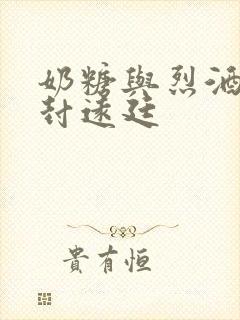 奶糖與烈酒
封遠廷
貴有恒